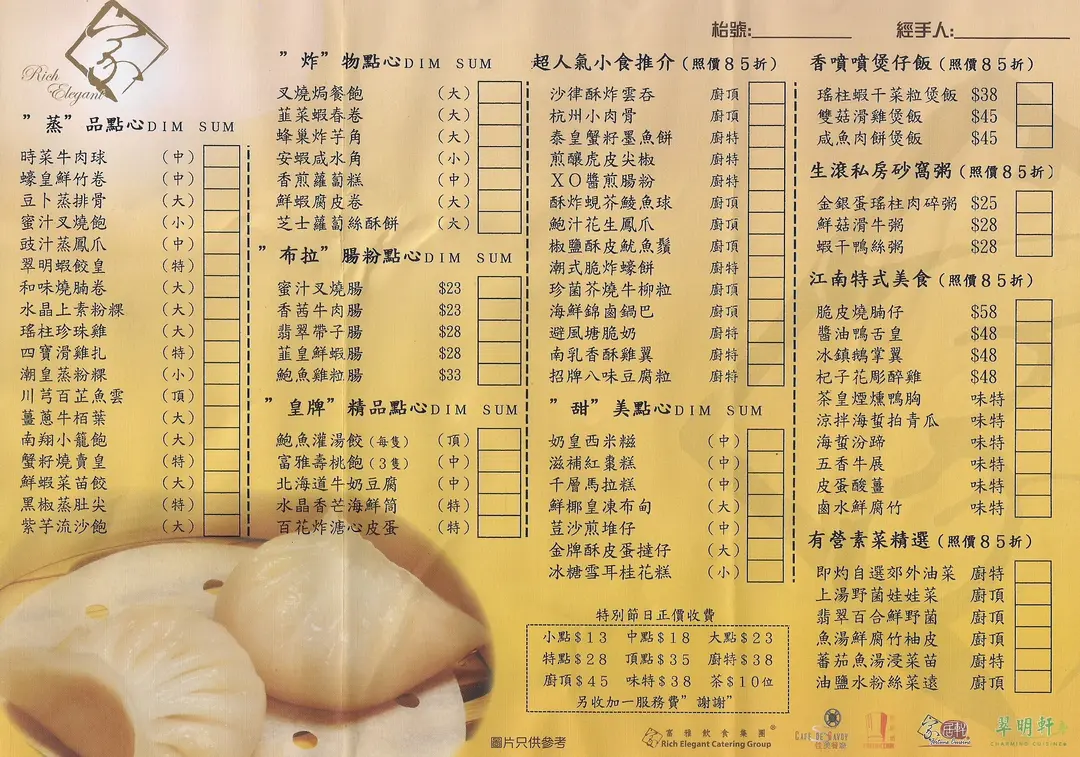 枱號:
經手人:
Rich
Elegant
"蒸"品點心DIM SUM
時菜牛肉球 (中)
蠔皇鮮竹卷 (中)
豆卜蒸排骨 (大)
蜜汁叉燒飽 (小)
豉汁蒸鳳爪 (中)
翠明蝦餃皇 (特)
和味燒腩卷 (大)
水晶上素粉粿 (大)
瑤柱珍珠雞 (大)
四寶滑雞扎 (特)
潮皇蒸粉粿 (小)
川芎百芷魚雲 (頂)
薑蔥牛栢葉 (大)
南翔小籠飽 (大)
蟹籽燒賣皇 (特)
鮮蝦菜苗餃 (大)
黑椒蒸肚尖 (特)
紫芋流沙飽 (大)
"炸"物點心DIM SUM
叉燒焗餐飽 (大)
韮菜蝦春卷 (大)
蜂巢炸芋角 (大)
安蝦咸水角 (小)
香煎蘿蔔糕 (中)
鮮蝦腐皮卷 (大)
芝士蘿蔔絲酥餅 (大)
"布拉"腸粉點心DIM SUM
蜜汁叉燒腸 $23
香茜牛肉腸 $23
翡翠帶子腸 $28
韮皇鮮蝦腸 $28
鮑魚雞粒腸 $33
"皇牌"精品點心DIM SUM
鮑魚灌湯餃(每隻) (頂)
富雅壽桃飽(3隻) (中)
北海道牛奶豆腐 (中)
水晶香芒海鮮筒 (特)
百花炸溏心皮蛋 (特)
超人氣小食推介(照價85折)
沙律酥炸雲吞 廚頂
杭州小肉骨 廚頂
泰皇蟹籽墨魚餅 廚特
煎釀虎皮尖椒 廚頂
XO醬煎腸粉 廚特
酥炸蜆芥鯪魚球 廚頂
鮑汁花生鳳爪 廚頂
椒鹽酥皮魷魚鬚 廚頂
潮式脆炸蠔餅 廚特
珍菌芥燒牛柳粒 廚頂
海鮮錦鹵鍋巴 廚頂
避風塘脆奶 廚特
南乳香酥雞翼 廚特
招牌八味豆腐粒 廚特
"甜"美點心DIM SUM
奶皇西米糍 (中)
滋補紅棗糕 (中)
千層馬拉糕 (中)
鮮椰皇凍布甸 (大)
荳沙煎堆仔 (中)
金牌酥皮蛋撻仔 (大)
冰糖雪耳桂花糕 (小)
特別節日正價收費
小點$13 中點$18 大點$23
特點$28 頂點$35 廚特$38
廚頂$45 味特$38 茶$10位
另收加一服務費"謝謝"
香噴噴煲仔飯(照價85折)
瑤柱蝦干菜粒煲飯 $38
雙菇滑雞煲飯 $45
咸魚肉餅煲飯 $45
生滾私房砂窩粥(照價85折)
金銀蛋瑤柱肉碎粥 $25
鮮菇滑牛粥 $28
蝦干鴨絲粥 $28
江南特式美食(照價85折)
脆皮燒腩仔 $58
醬油鴨舌皇 $48
冰鎮鵝掌翼 $48
杞子花彫醉雞 $48
茶皇煙燻鴨胸 味特
涼拌海蜇拍青瓜 味特
海蜇汾蹄 味特
五香牛展 味特
皮蛋酸薑 味特
鹵水鮮腐竹 味特
有營素菜精選(照價85折)
即灼自選郊外油菜 廚特
上湯野菌娃娃菜 廚頂
翡翠百合鮮野菌 廚頂
魚湯鮮腐竹柚皮 廚頂
蕃茄魚湯浸菜苗 廚特
油鹽水粉絲菜遠 廚頂
圖片只供參考
富雅飲食集團®
Rich Elegant Catering Group
CAFE DE SAVOY
翠明軒
CHARMING CUISINE